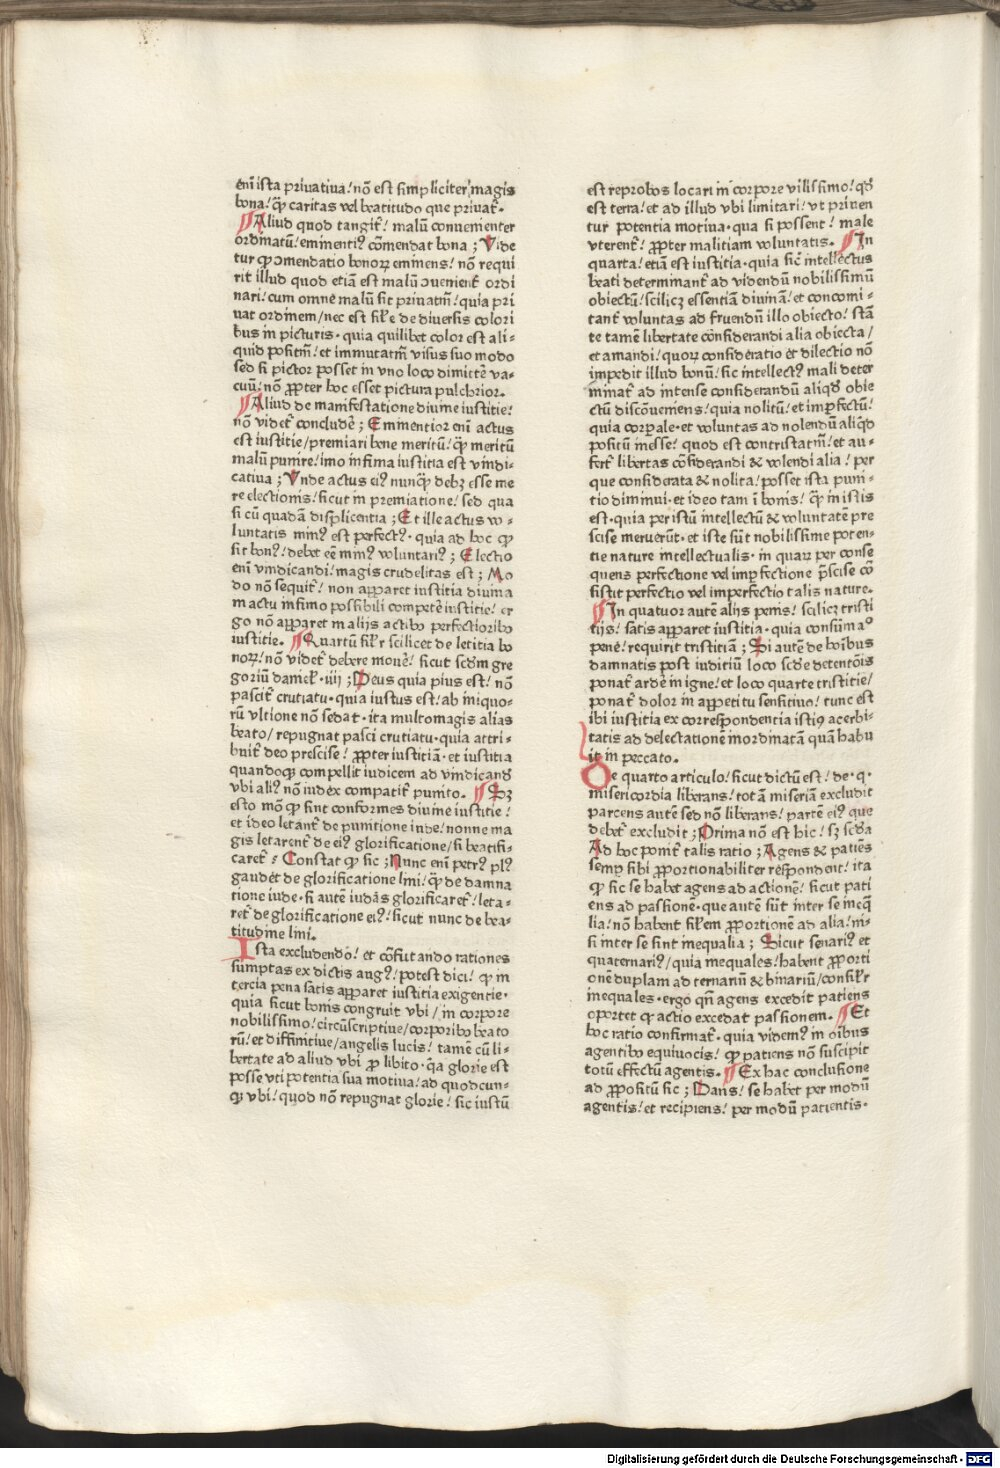 eni̅ ista priuatiua! nō est simpliciter magis
bona! qͣ caritas vel beatitudo que priuat̄.
¶ Aliud quod tangit̄! malū conuenienter
ordinatū! eminentiꝰ cōmendat bona ; Vide
tur ꝙ ↄmendatio bonoꝝ eminens! nō requi
rit illud quod etiā est malū ↄuenient̄ ordi
nari! cum omne malū sit priuatiū! quia pri
uat ordinem / nec est sil̄e de diuersis colori
bus in picturis · quia quilibet color est ali-
quid positiū! et immutatiū visus suo modo
sed si pictor posset in vno loco dimittē va-
cuū! nō ꝓpter hoc esset pictura pulchrior.
¶ Aliud de manifestatione diuine iustitie!
nō videt̄ concludē ; Eminentior eni̅ actus
est iustitie / premiari bene meritū! qͣ meritū
malū punire! imo infima iustitia est vindi-
catiua ; Vnde actus eiꝰ nunqͣ debꝫ esse me
re electionis! sicut in premiatione! sed qua
si cū quadā displicentia ; Et ille actus vo-
luntatis minꝰ est perfectꝰ · quia ad hoc ꝙ
sit bonꝰ! debet eē minꝰ voluntariꝰ ; Electio
eni̅ vindicandi! magis crudelitas est ; Mo
do nō sequit̄! non apparet iustitia diuina
in actu infimo possibili competē iustitie! er
go nō apparet in alijs actibꝰ perfectioribꝰ
iustitie. ¶ Quartū sil̄r scilicet de letitia bo
noꝝ! nō videt̄ debere mouē! sicut scd̄m gre
goriū daniel · iiij ; Deus quia pius est! nō
pascit̄ cruciatu · quia iustus est! ab iniquo-
rū vltione nō sedat̄ · ita multomagis alias
beatoꝝ / repugnat pasci cruciatu · quia attri-
buit̄ deo prescise! ꝓpter iustitiā · et iustitia
quandoqꝫ compellit iudicem ad vindicand̄
vbi aliꝰ nō iudex compatit̄ punito. ¶ Sꝫ
esto mō ꝙ sint conformes diuine iustitie!
et ideo letant̄ de punitione iude! nonne ma
gis letarent̄ de eiꝰ glorificatione / si beatifi-
caret̄ ? Constat ꝙ sic ; Nunc eni̅ petrꝰ plꝰ
gaudet de glorificatione lini! qͣ de damna
tione iude · si autē iudas glorificaret̄! leta-
ret̄ de glorificatione eiꝰ! sicut nunc de bea-
titudine lini.
Ista excludendo! et cōfutando rationes
sumptas ex dictis augꝰ! potest dici! ꝙ in
tercia pena satis apparet iustitia exigentie ·
quia sicut bonis congruit vbi / in corpore
nobilissimo! circūscriptiue / corporibꝰ beato
rū! et diffinitiue / angelis lucis! tamē cū li-
bertate ad aliud vbi ꝓ libito · qͣa glorie est
posse vti potentia sua motiua! ad quodcun-
qꝫ vbi! quod nō repugnat glorie! sic iustū
est reprobos locari in corpore vilissimo! qd̄
est terra! et ad illud vbi limitari! vt priuen
tur potentia motiua · qua si possent! male
vterent̄! ꝓpter malitiam voluntatis. ¶ In
quarta! etiā est iustitia · quia sic̄ intellectus
beati determinant̄ ad videndū nobilissimū
obiectū! scilicꝫ essentiā diuinā! et concomi-
tant̄ voluntas ad fruendū illo obiecto! stā
te tamē libertate cōsiderandi alia obiecta /
et amandi! quoꝝ consideratio et dilectio nō
impedit illud bonū! sic intellectꝰ mali deter
minat̄ ad intense considerandū aliqd̄ obie
ctū discōueniens! quia nolitū! et imꝑfectū!
quia corꝑale · et voluntas ad nolendū aliqd̄
positū inesse! quod est contristatiū! et au-
fert̄ libertas cōsiderandi & volendi alia! per
que considerata & nolita! posset ista puni-
tio diminui · et ideo tam ī bonis! qͣ in istis
est · quia per istū intellectū & voluntatē pre
scise meruerūt · et iste sūt nobilissime poten-
tie nature intellectualis · in quaꝝ per conse
quens perfectione vel imꝑfectione p̄scise cō
sistit perfectio vel imperfectio talis nature.
¶ In quatuor autē alijs penis! scilicꝫ tristi
tijs! satis apparet iustitia · quia consūmaͦ
pene! requirit tristitiā ; Si autē de hoībus
damnatis post iuditiū loco scd̄e detentōis
ponat̄ ardē in igne! et loco quarte tristitie /
ponat̄ dolor in appetitu sensitiuo! tunc est
ibi iustitia ex correspondentia istiꝰ acerbi-
tatis ad delectationē inordinatā quā habu
it in peccato.
De quarto articulo! sicut dictū est! de · q ·
misericordia liberans! totā miseriā excludit
parcens autē sed nō liberans! partē eiꝰ que
debet̄ excludit ; Prima nō est hic! sꝫ scd̄a
Ad hoc ponit̄ talis ratio ; Agens & patiēs
semꝑ sibi ꝓportionabiliter respondent! ita
ꝙ sic se habet agens ad actionē! sicut pati
ens ad passionē · que autē sūt inter se ineq̄
lia! nō habent sil̄em ꝓportionē ad alia! ni-
si inter se sint inequalia ; Sicut senariꝰ et
quaternariꝰ / quia inequales! habent ꝓporti
onē duplam ad ternariū & binariū / consil̄r
inequales · ergo qn̄ agens excedit patiens
oportet ꝙ actio excedat passionem. ¶ Et
hoc ratio confirmat̄ · quia videmꝰ in oībus
agentibꝰ equiuocis! ꝙ patiens nō suscipit
totū effectū agentis. ¶ Ex hac conclusione
ad ꝓpositū sic ; Dans! se habet per modū
agentis! et recipiens! per modū patientis ·
Digitalisierung gefördert durch die Deutsche Forschungsgemeinschaft - DFG